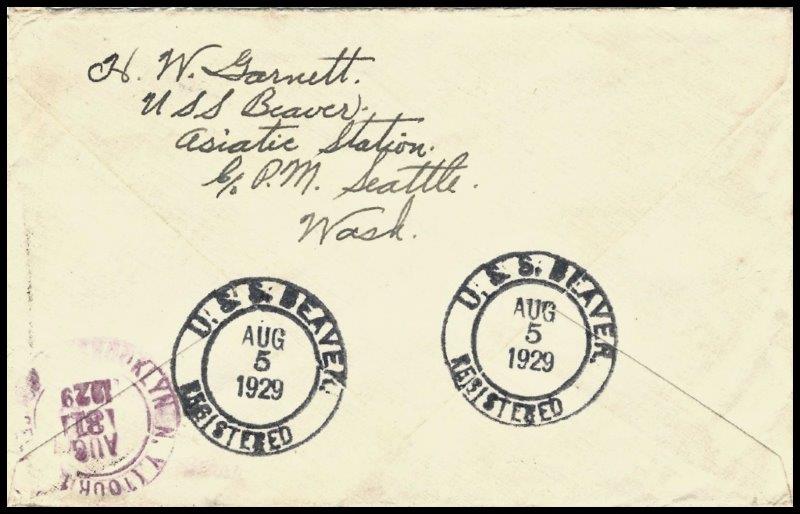 H. W. Garnett.
USS Beaver.
Asiatic Station.
c/o P.M. Seattle.
Wash.
U. S. S. BEAVER.
AUG
5
1929
REGISTERED
U. S. S. BEAVER.
AUG
5
1929
REGISTERED
BROOKLYN, N.Y.
AUG
1929